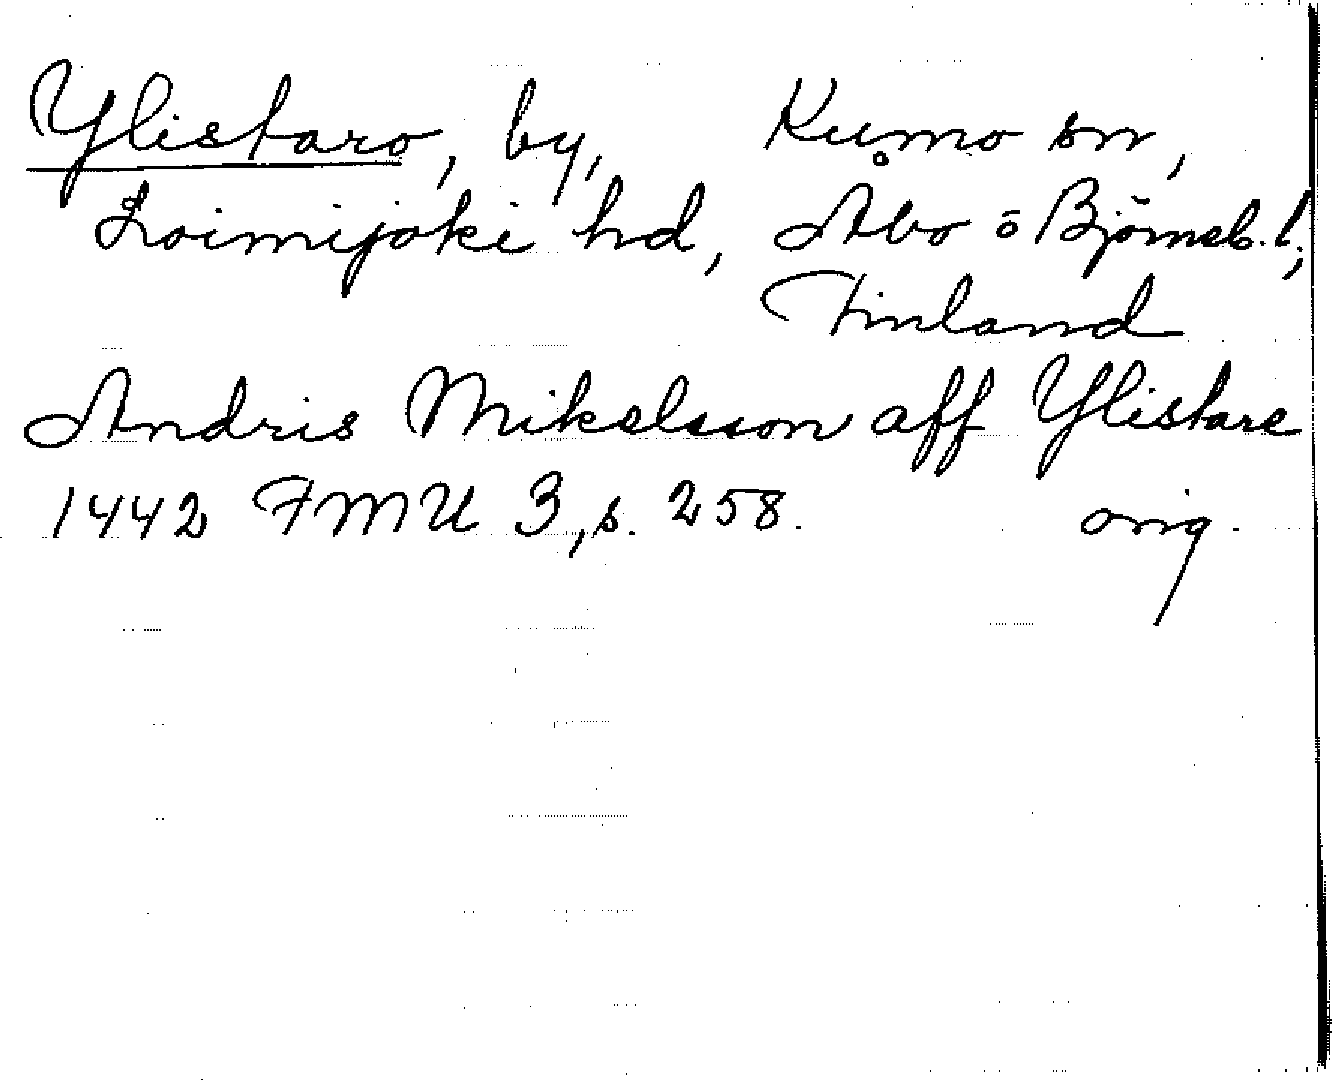 Ylistaro, by, Kumo sn,
Loimijoki hd, Åbo o Björneb. l.,
Finland
Andris Mikelsson aff Ylistare
1442 FMU 3, s. 258. orig.